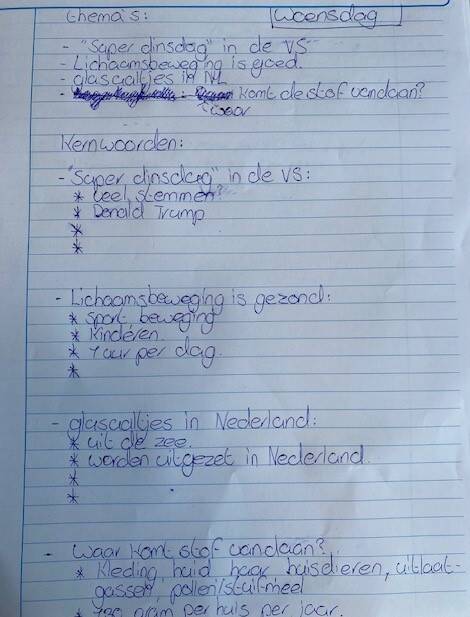 thema's: Woensdag
- "Super dinsdag" in de VS
- Lichaamsbeweging is goed.
- glasaaltjes in NL
- komt de stof vandaan?
waar
Kernwoorden:
- "Super dinsdag" in de VS:
* veel stemmen?
* Donald Trump
*
*
- Lichaamsbeweging is gezond:
* sport beweging
* Kinderen
* 1 uur per dag.
*
- glasaaltjes in Nederland:
* uit de zee.
* worden uitgezet in Nederland.
*
*
- Waar komt stof vandaan?
* Kleding, huid haar huisdieren, uitlaat-
gassen, pollen/stuifmeel
gram per huis per jaar.